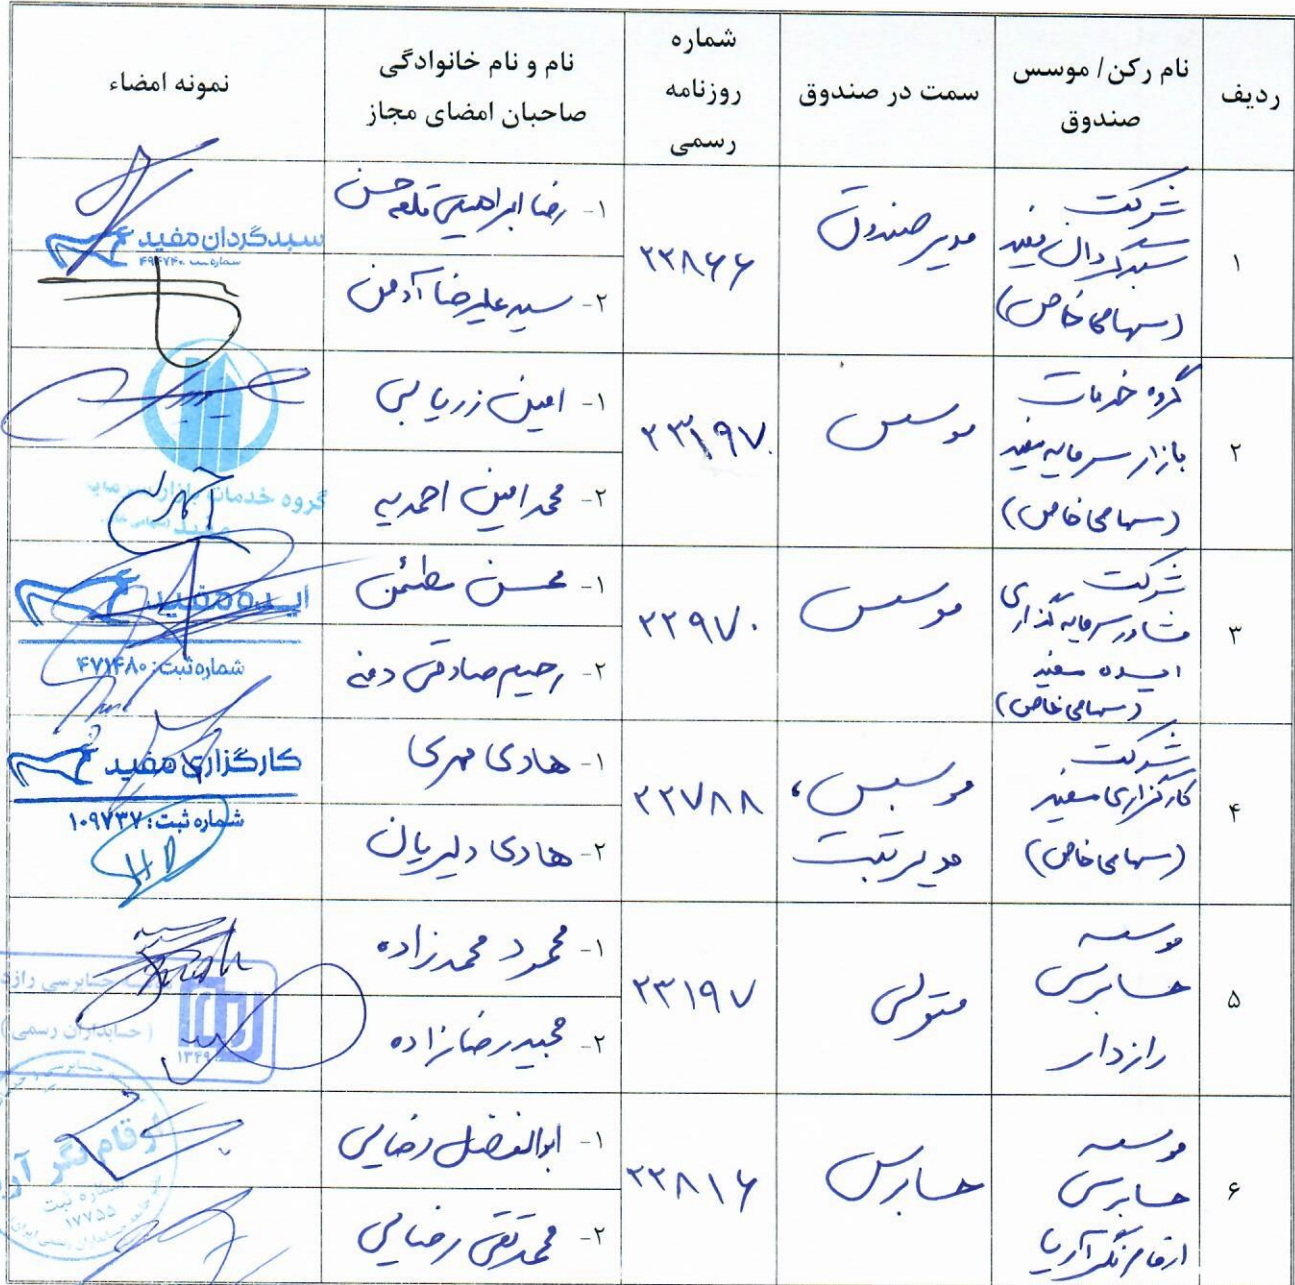 ردیف
نام رکن/ موسس
صندوق
سمت در صندوق
شماره
روزنامه
رسمی
نام و نام خانوادگی
صاحبان امضای مجاز
نمونه امضاء
۱
شرکت
سبدگردان مفید
(سهامی خاص)
مدیر صندوق
۲۲۸۶۶
۱- رضا ابراهیمی قلعه حسن
۲- سید علیرضا آدمی
سبدگردان مفید
۲
گروه خدمات
بازار سرمایه مفید
(سهامی خاص)
موسس
۲۳۱۹۷
۱- امین زریابی
۲- محمد امین احمدیه
گروه خدمات بازار سرمایه
مفید (سهامی خاص)
۳
شرکت
مشاور سرمایه گذاری
ایده مفید
(سهامی خاص)
موسس
۲۲۹۷۰
۱- محسن مطمئن
۲- رحیم صادقی دمنه
ایده مفید
شماره ثبت: ۴۷۱۴۸۰
۴
شرکت
کارگزاری مفید
(سهامی خاص)
موسس،
مدیر ثبت
۲۲۷۸۸
۱- هادی مهری
۲- هادی دلیریان
کارگزاری مفید
شماره ثبت: ۱۰۹۷۳۷
۵
موسسه
حسابرسی
رازدار
متولی
۲۳۱۹۷
۱- محمود محمدزاده
۲- مجید رضازاده
حسابرسی رازدار
(حسابداران رسمی)
۱۳۴۹
۶
موسسه
حسابرسی
ارقام نگر آریا
حسابرس
۲۲۸۱۶
۱- ابوالفضل رضایی
۲- محمدتقی رضایی
ارقام نگر آریا
شماره ثبت
۱۷۷۵۵